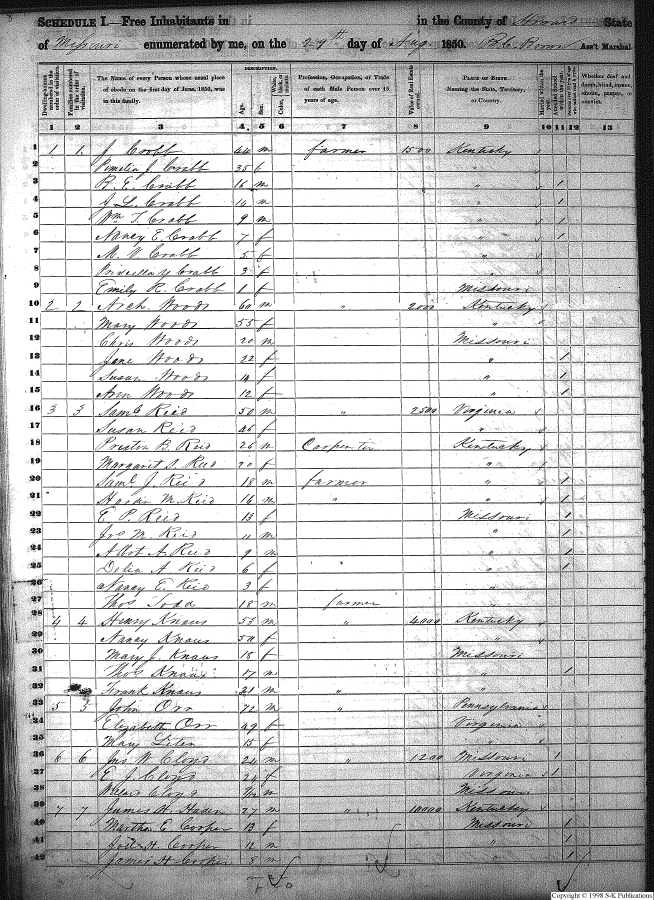 Schedule I.—Free Inhabitants in in the County of Howard State
of Missouri enumerated by me, on the 29th day of Aug 1850. Ass't Marshal
DESCRIPTION.
Dwelling-houses numbered in the order of visitation. Families numbered in the order of visitation. The Name of every Person whose usual place of abode on the first day of June, 1850, was in this family. Age. Sex. Color, Profession, Occupation, or Trade of each Male Person over 15 years of age. Value of Real Estate owned. PLACE OF BIRTH. Naming the State, Territory, or Country. Married within the year. Attended School Whether deaf and dumb, blind, insane, idiotic, pauper, or convict.
1 2 3 4 5 6 7 8 9 10 11 12 13
1 1 1 J. Crabb 44 m farmer 1500 Kentucky
2 Pemelia J Crabb 35 f "
3 R. E. Crabb 16 m " 1
4 J. L. Crabb 14 m " 1
5 Wm T. Crabb 9 m " 1
6 Nancy E. Crabb 7 f " 1
7 M. V. Crabb 5 f "
8 Priscilla Y Crabb 3 f "
9 Emily R. Crabb 1 f Missouri
10 2 2 Arch Woods 60 m " 2000 Kentucky
11 Mary Woods 55 f "
12 Chris Woods 20 m Missouri
13 Jane Woods 22 f " 1
14 Susan Woods 14 f " 1
15 Ann Woods 12 f " 1
16 3 3 Saml Reid 50 m " 2500 Virginia
17 Susan Reid 46 f "
18 Preston B. Reid 26 m Carpenter Kentucky
19 Margaret S. Reid 20 f "
20 Saml J. Reid 18 m farmer " 1
21 M. Reid 16 m " " 1
22 E. P. Reid 13 f Missouri 1
23 Jos M. Reid 11 m " 1
24 A. Reid 9 m " 1
25 Delia A Reid 6 f " 1
26 Nancy E. Reid 3 f "
27 Thos Todd 18 m farmer "
28 4 4 Henry Knaus 53 m " 4000 Kentucky
29 Nancy Knaus 50 f "
30 Mary J. Knaus 18 f Missouri
31 Thos Knaus 17 m " 1
32 Frank Knaus 21 m " "
33 5 5 John Orr 72 m " Pennsylvania
34 Elizabeth Orr 49 f Virginia
35 Mary 15 f "
36 6 6 Jas W Cloyd 24 m " 1200 Missouri 1
37 E. J. Cloyd 20 f Virginia 1
38 Cloyd m Missouri
39 7 7 James W. Haden 27 m " 10000 Kentucky
40 Martha E Cooper 13 f Missouri 1
41 Joel H. Cooper 12 m " 1
42 James H Cooper 8 m " 1
Copyright © 1998 S-K Publications